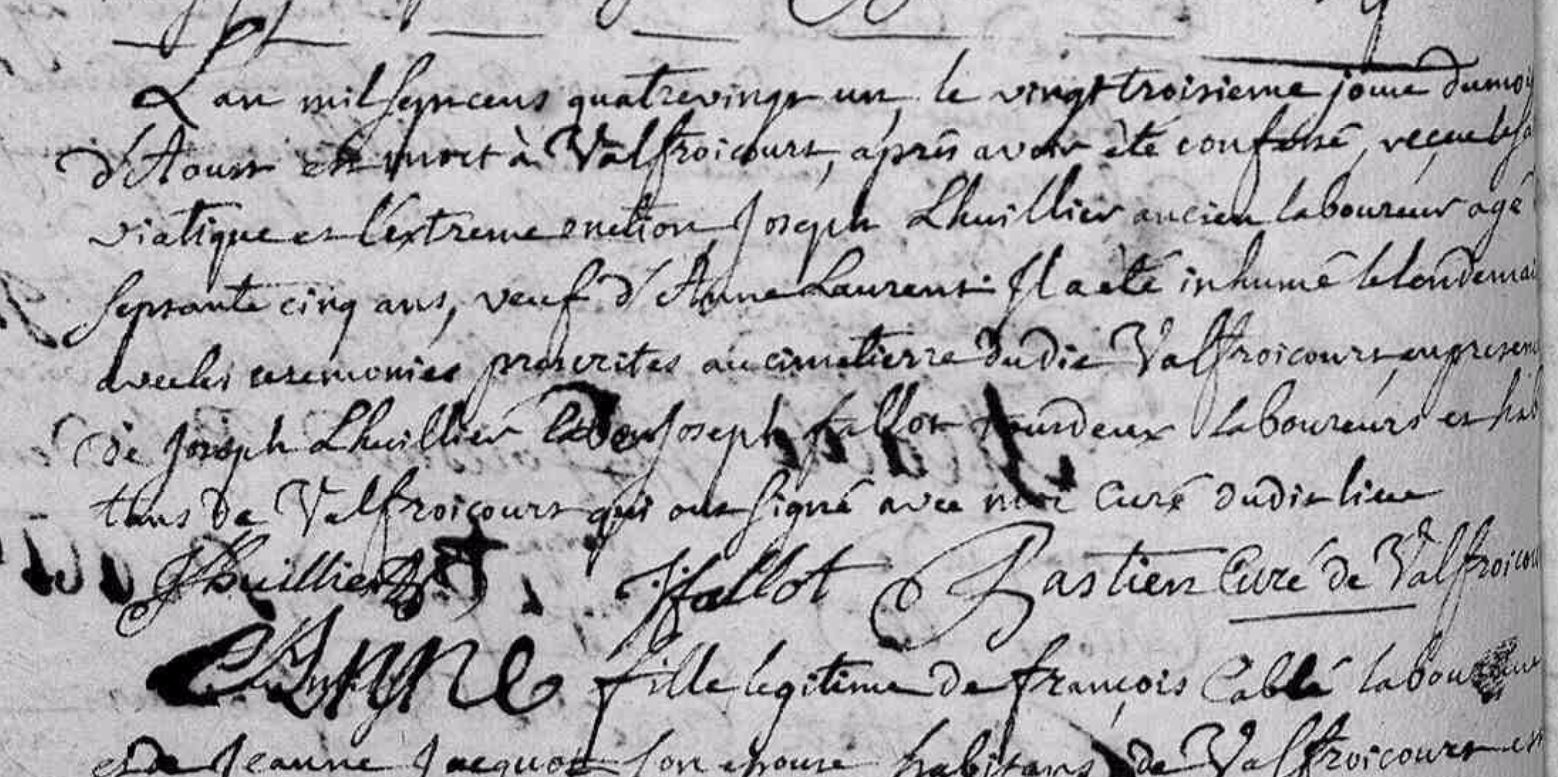 L'an mil sept cens quatrevingt un, le vingt troisieme jour du moi
d'Aoust est mort à Valfroicourt, aprés avoir été confessé, reçu le st
viatique et l'extreme onction, Joseph Lhuillier ancien laboureur agé
septante cinq ans, veuf d'Anne Laurent. Il a été inhumé le lendemai
avec les ceremonies prescrites au cimetierre dudit Valfroicourt, en presen
de Joseph Lhuillier et de Joseph fallot tous deux laboureurs et hab
tans de Valfroicourt qui ont signé avec moi Curé dudit lieu
J Lhuillier J fallot Bastien Curé de Valfroicour
Anne fille legitime de françois Cablé laboureur
et de Jeanne Jacquot son epouse habitans de Valfroicourt est